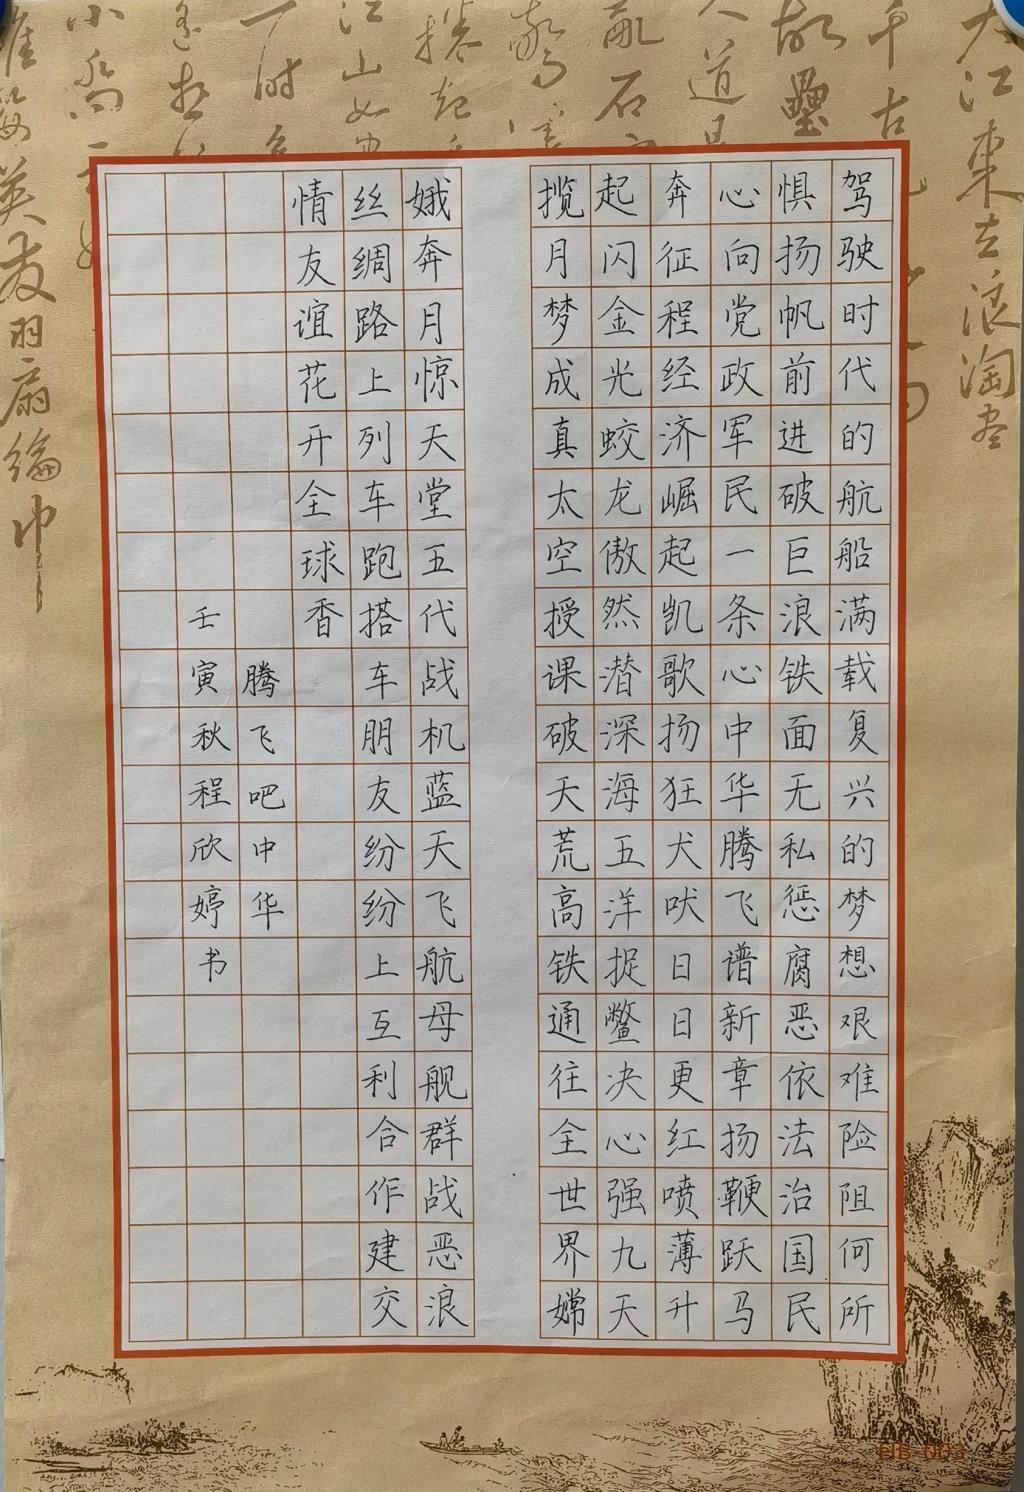 驾驶时代的航船满载复兴的梦想艰难险阻何所
惧扬帆前进破巨浪铁面无私惩腐恶依法治国民
心向党政军民一条心中华腾飞谱新章扬鞭跃马
奔征程经济崛起凯歌扬狂犬吠日日更红喷薄升
起闪金光蛟龙傲然潜深海五洋捉鳖决心强九天
揽月梦成真太空授课破天荒高铁通往全世界嫦
娥奔月惊天堂五代战机蓝天飞航母舰群战恶浪
丝绸路上列车跑搭车朋友纷纷上互利合作建交
情友谊花开全球香
腾飞吧中华
壬寅秋程欣婷书
大江东去浪淘尽
千古
故垒
人道是
乱石
惊涛
捲起
江山如画
一时
遥想
小乔
雄姿英发羽扇纶巾
HB-003